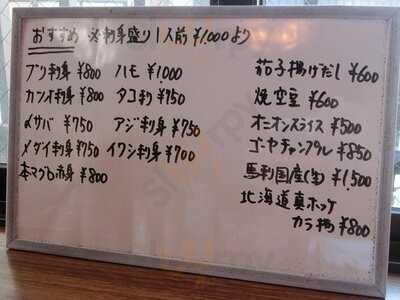 おすすめ 刺身盛り1人前¥1000より
ブリ刺身 ¥800
カツオ刺身 ¥800
〆サバ ¥750
メダイ刺身 ¥750
本マグロ赤身 ¥800
ハモ ¥1000
タコ刺 ¥750
アジ刺身 ¥750
イワシ刺身 ¥700
茄子揚げだし ¥600
焼空豆 ¥600
オニオンスライス ¥500
ゴーヤチャンプル ¥850
馬刺国産(生) ¥1,500
北海道真ホッケ
カラ揚 ¥800